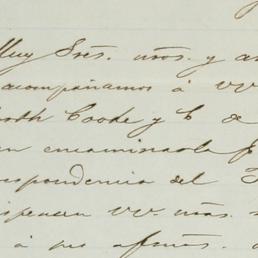 Muy Sres. nros. y a
acompañamos á VV
Cooke y C de
en encaminarle
respondencia del
dispensen VV. nras.
á sus afmos.